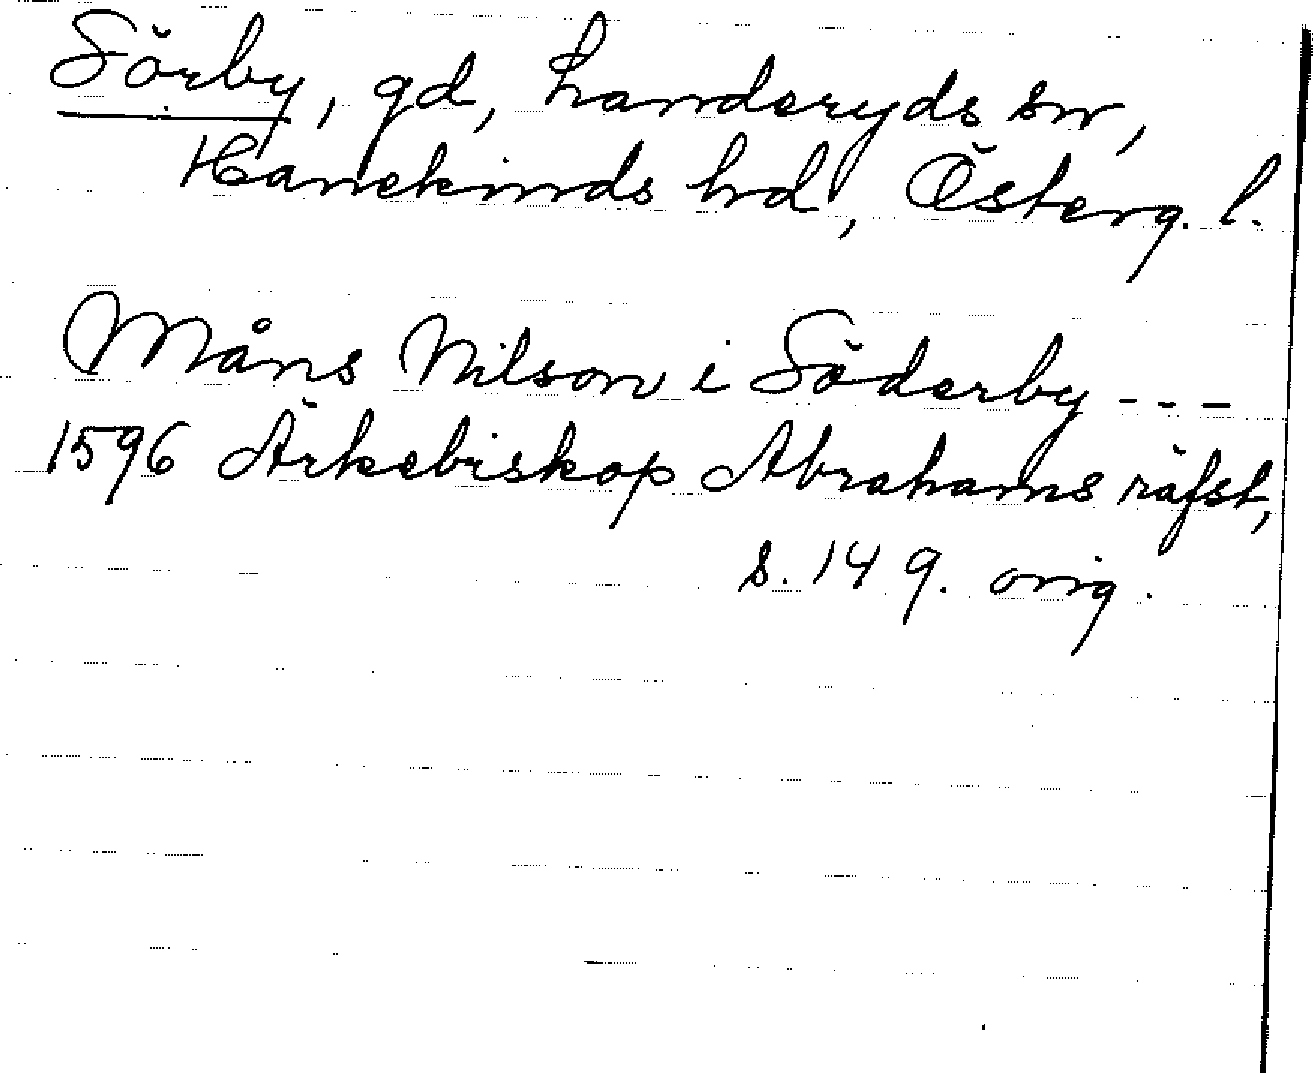 Sörby, gd, Landeryds sn,
Hanekinds hd, Österg. l.
Måns Nilson i Söderby ---
1596 Ärkebiskop Abrahams räfst,
s. 149. orig.